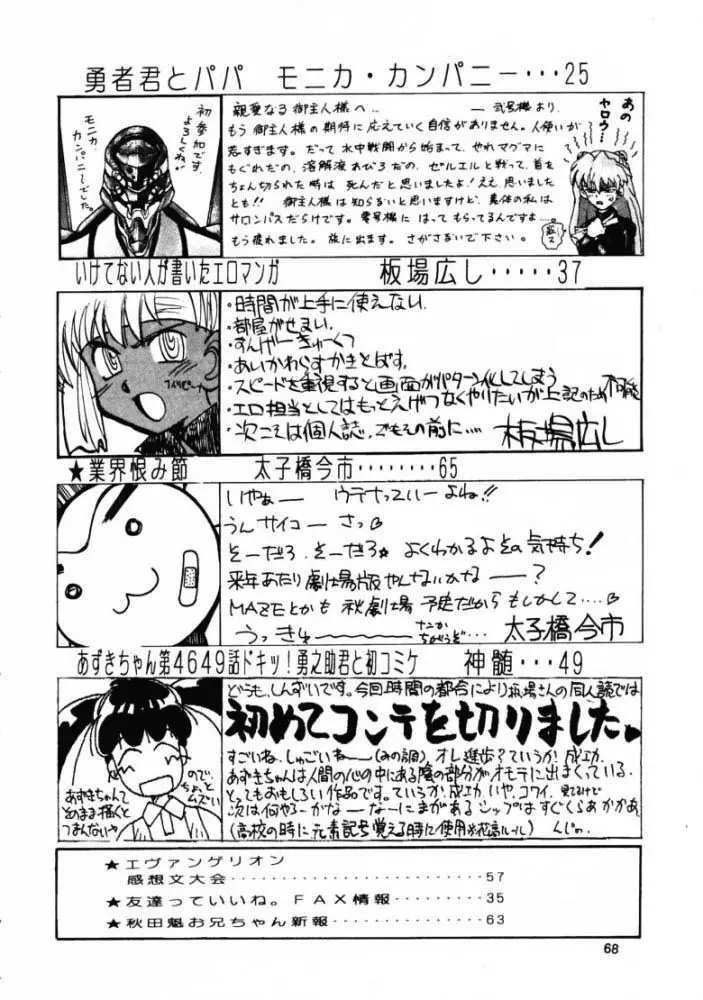 勇者君とパパ　モニカ・カンパニー・・・25
初参加です。
よろしくね。
モニカ.
カンパニーでした。
親愛なる御主人様へ‥　　　　　― 弐号機より.
もう御主人様の期待に応えていく自信がありません。人使いが
荒すぎます。だって水中戦闘から始まって、やれマグマに
もぐれだの、溶解液あびろだの、ゼルエルと戦って、首を
ちょん切られた時は死んだと思いましたよ!ええ、思いました
とも!!　御主人様は知らないと思いますけど、裏体の私は
サロンパスだらけです。零号機にはってもらってるんですよ....。
もう疲れました。旅に出ます。さがさないで下さい。
あの
ヤロウ…
いけてない人が書いたエロマンガ　　　板場広し・・・・・37
・時間が上手に使えない.
・部屋がせまい.
・すんげーきゅーくつ
・あいかわらずかきとばす.
・スピードを重視すると画面がパターン化してしまう
・エロ担当としてはもっとえげつなくやりたいが上記のため不可能
・次こそは個人誌、でもその前に....　板場広し
★業界恨み節　　太子橋今市・・・・・・・・65
いやぁ――　ウテナっていーよねっ!!
うんサイコーさっ
そーだろ.そーだろ☆ よくわかるよその気持ち!
来年あたり劇場版やんないかな――?
MAZEとかも秋劇場予定だからもしかして....
うっきゅ〜〜〜　なにか
ちがうぞ...　太子橋今市
あずきちゃん第4649話ドキッ!勇之助君と初コミケ　神髄・・・49
どうも、しんずいです。今回時間の都合により板場さんの同人誌では
初めてコンテを切りました。
すごいね、しゅごいね――(みの調)オレ進歩?ていうか成功.
あずきちゃんは人間の心の中にある陰の部分がオモテに出まくっている.
とってもおもしろい作品です。ていうか、成功、いや、コワイ.見てるけど
次は何やろーかなー　なーにまがあるシップはすぐくらあかかぁ.
(高校の時に元素記号覚える時に使用
あずきちゃんて
そのまま描くと
つまんないや
ので、
ちょっと
ムズい
★エヴァンゲリオン
感想文大会・・・・・・・・・・・・・・・・・・・・・・・・57
★友達っていいね。FAX情報・・・・・・・・・・・35
★秋田魁お兄ちゃん新報・・・・・・・・・・・・・・・・63
68